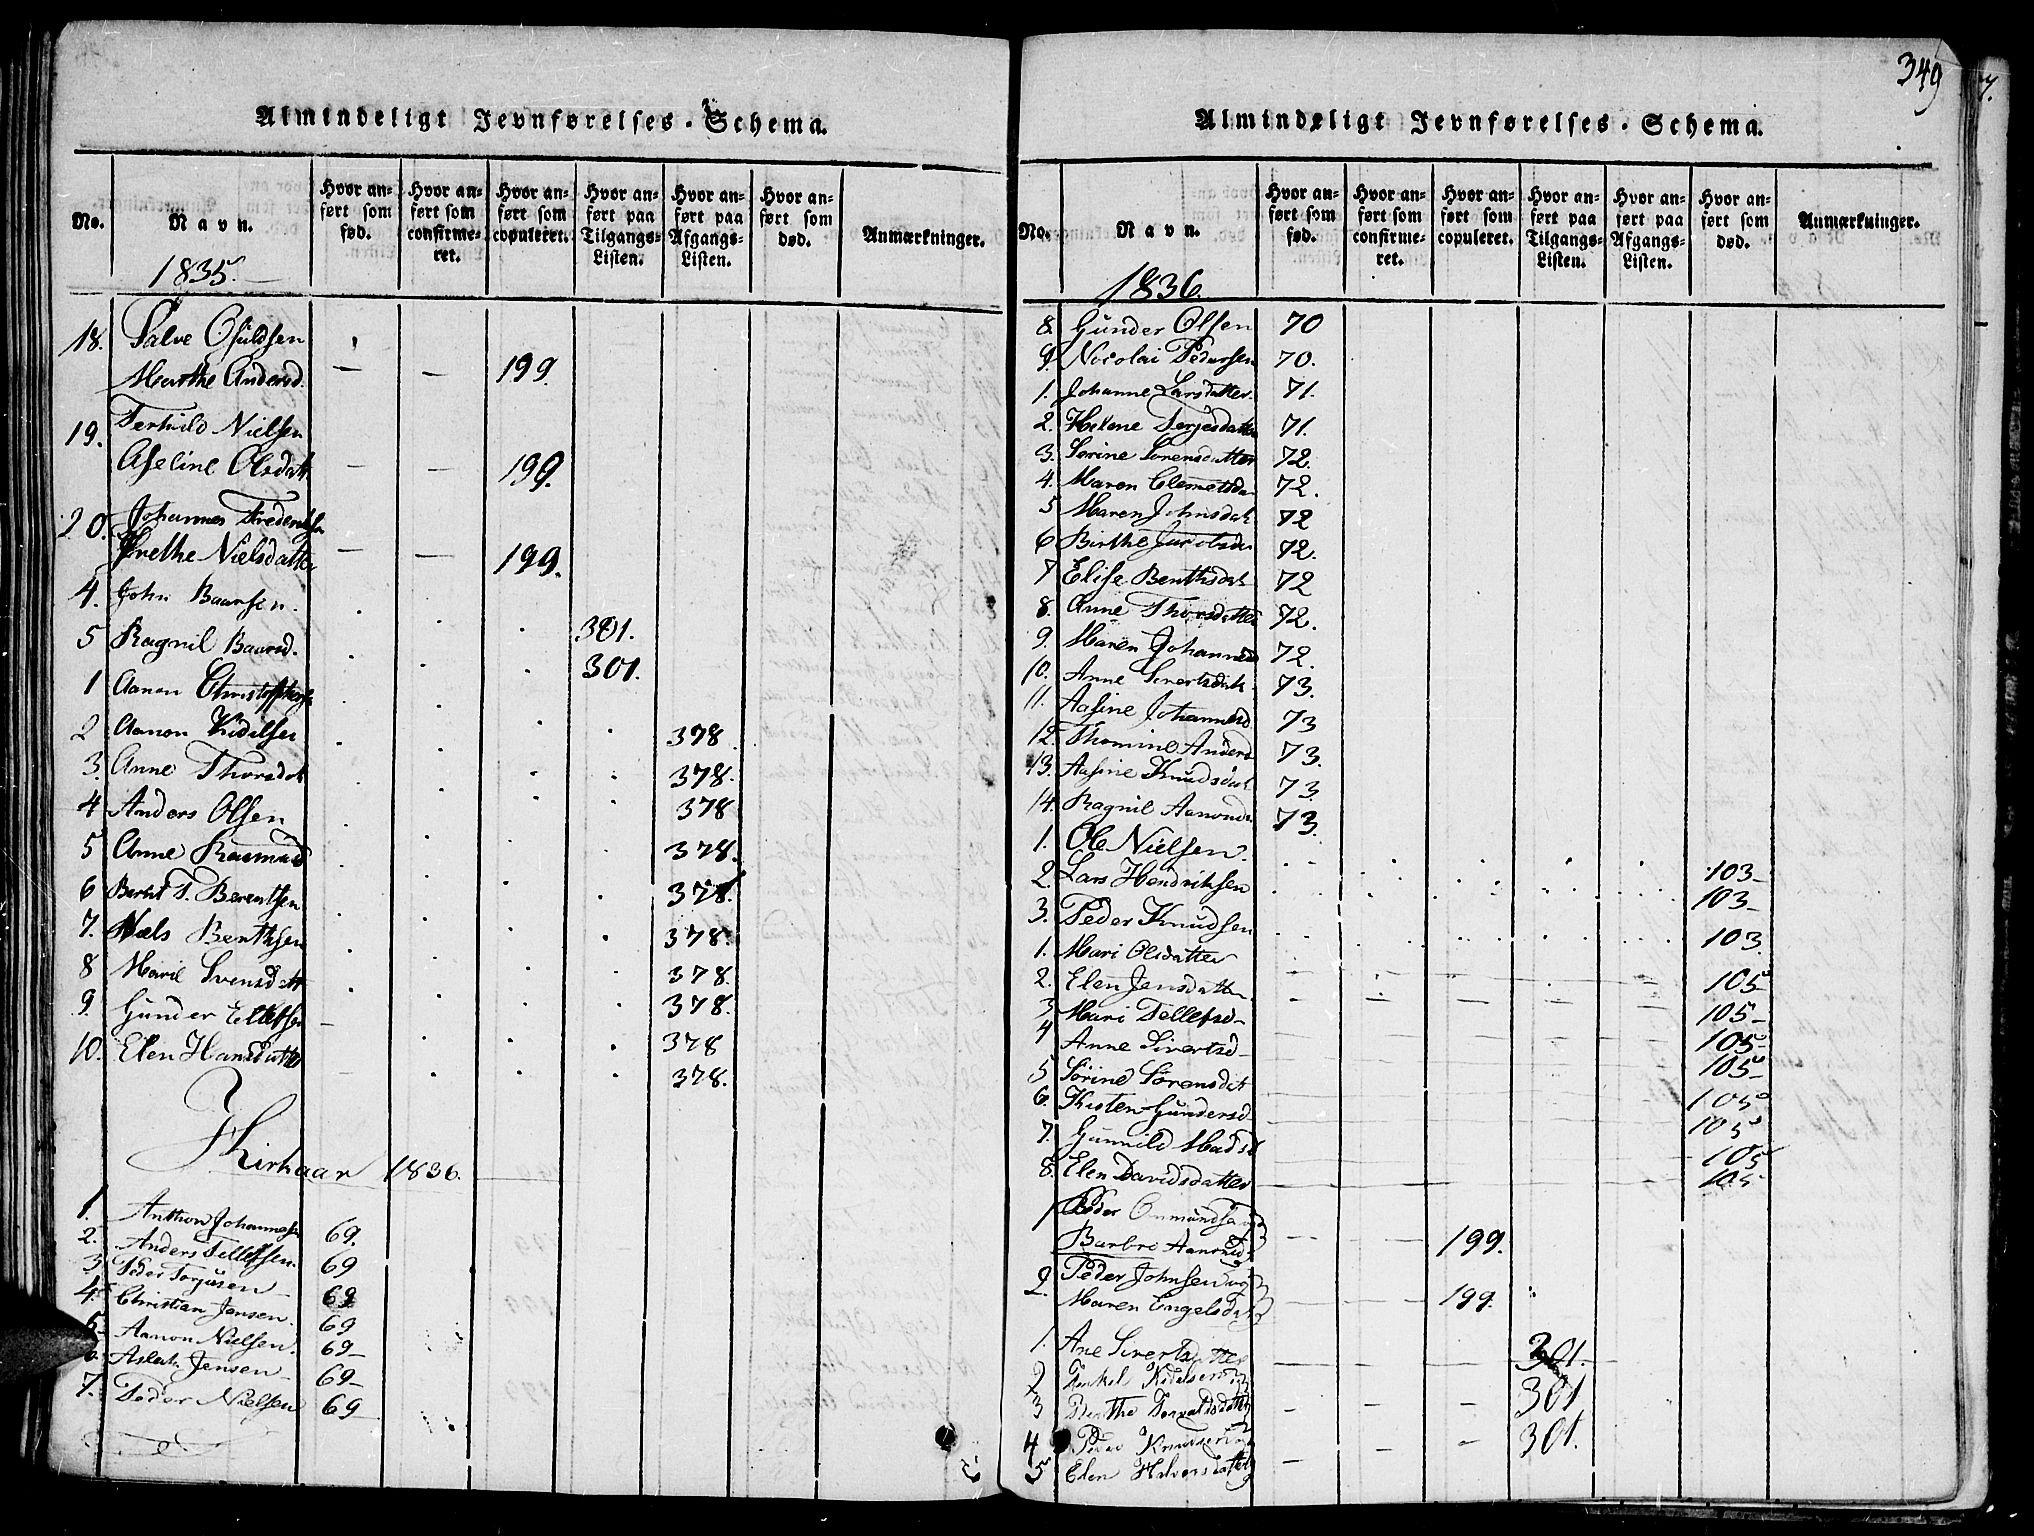 349
Almindeligt Jevnførelses-Schema.
No.
Navn.
Hvor anført som fød.
Hvor anført som confirmeret.
Hvor anført som copuleret.
Hvor anført paa Tilgangs-Listen.
Hvor anført paa Afgangs-Listen.
Hvor anført som død.
Anmærkninger.
1835.
18. Salve Osuldsen
Marthe Andersd. — — 199.
19. Terkild Nielsen
Aseline Olsdatt — — 199.
20. Johannes Fredericksen
Grethe Nielsdatter — — 199.
4. John Baarsen. 301.
5 Ragnil Baarsd. 301.
1 Aanon Christophers
2 Aanon Kidelsen 378
3. Anne Thorsdat 378.
4 Anders Olsen 378
5 Anne Rasmusd 378.
6 Bernt T. Berentsen 378.
7. Niels Benthsen 378.
8 Maril Svensdatt 378.
9 Gunder Ellefsen 378.
10. Elen Hansdatter 378
378.
Kirkaar 1836.
1. Anthon Johannesen 69.
2. Anders Tellefsen. 69
3 Peder Torjusen 69
4. Christian Jensen. 69
5 Aanon Nielsen. 69—
6. Aslak Jensen— 69—
7. Peder Nielsen 69—
Almindeligt Jevnførelses-Schema.
No.
Navn.
Hvor anført som fød.
Hvor anført som confirmeret.
Hvor anført som copuleret.
Hvor anført paa Tilgangs-Listen.
Hvor anført paa Afgangs-Listen.
Hvor anført som død.
Anmærkninger.
1836.
8. Gunder Olsen 70
9 Nicolai Pedersen 70.
1. Johanne Larsdatter. 71.
2. Helene Terjesdatter 71.
3. Sørine Sørensdatter 72.
4. Maren Clemetsda 72.
5 Maren Johnsdat 72
6 Birthe Jacobsda 72.
7 Elise Benthsdat 72
8. Anne Thorsdatter 72.
9. Maren Johannesd 72.
10. Anne Sivertsdat. 73.
11. Aasine Johannesd. 73
12. Thomine Andersd 73.
13. Aasine Knudsdat 73.
14. Ragnil Aanonds. 73.
1. Ole Nielsen. 103—
2. Lars Hendriksen 103—
3. Peder Knudsen 103
1. Mari Olsdatter 105
2. Elen Jensdatter 105—
3 Mari Tellefsd— 105
4 Anne Sivertsd— 105—
5 Sørine Sørensdat 105
6. Kisten Gundersd 105
7. Gunnild Madsd 105
8. Elen Davidsdatter 105
1 Peder Omundsen og
Barbro Aanonsd — — 199.
2. Peder Johnsen og
Maren Engelsdat — — 199.
1. Ane Sivertsdatter 301.
2 Kidelsen 301
3 Berthe Torvaldsdatter 301.
4 Peder Knudsen
5 Elen Halvorsdatter